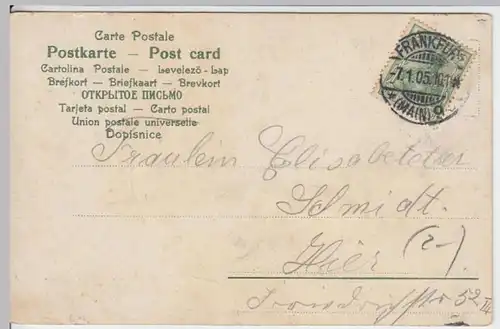 Carte Postale
Postkarte — Post card
Cartolina Postale — Levelező-Lap
Brefkort — Briefkaart — Brevkort
ОТКРЫТОЕ ПИСЬМО
Tarjeta postal — Carto postal
Union postale universelle
Dopisnice
FRANKFURT
7.1.05.
(MAIN) 9
Fräulein
Schmidt.
Hier
52 III